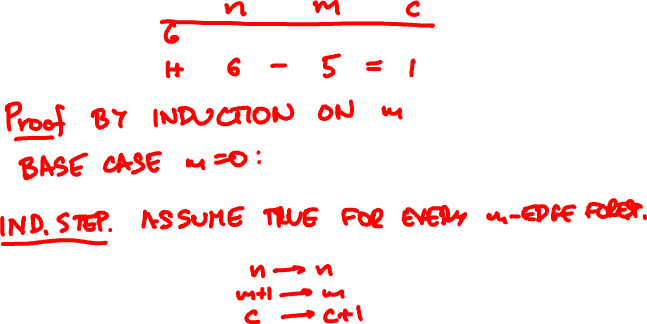 n m c
G
H 6 - 5 = 1
Proof BY INDUCTION ON m
BASE CASE m=0:
IND. STEP. ASSUME TRUE FOR EVERY m-EDGE FOREST.
n → n
m+1 → m
c → c+1